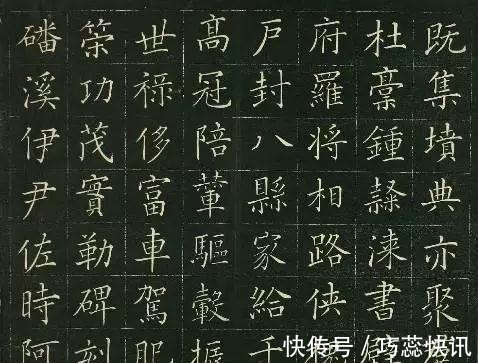 既集墳典亦聚
杜稾鍾隸漆書
府羅将相路俠
戶封八縣家給千
高冠陪輦驅轂振
世祿侈富車駕肥
策功茂實勒碑刻
磻溪伊尹佐時阿
快传号 / 巧蕊快讯